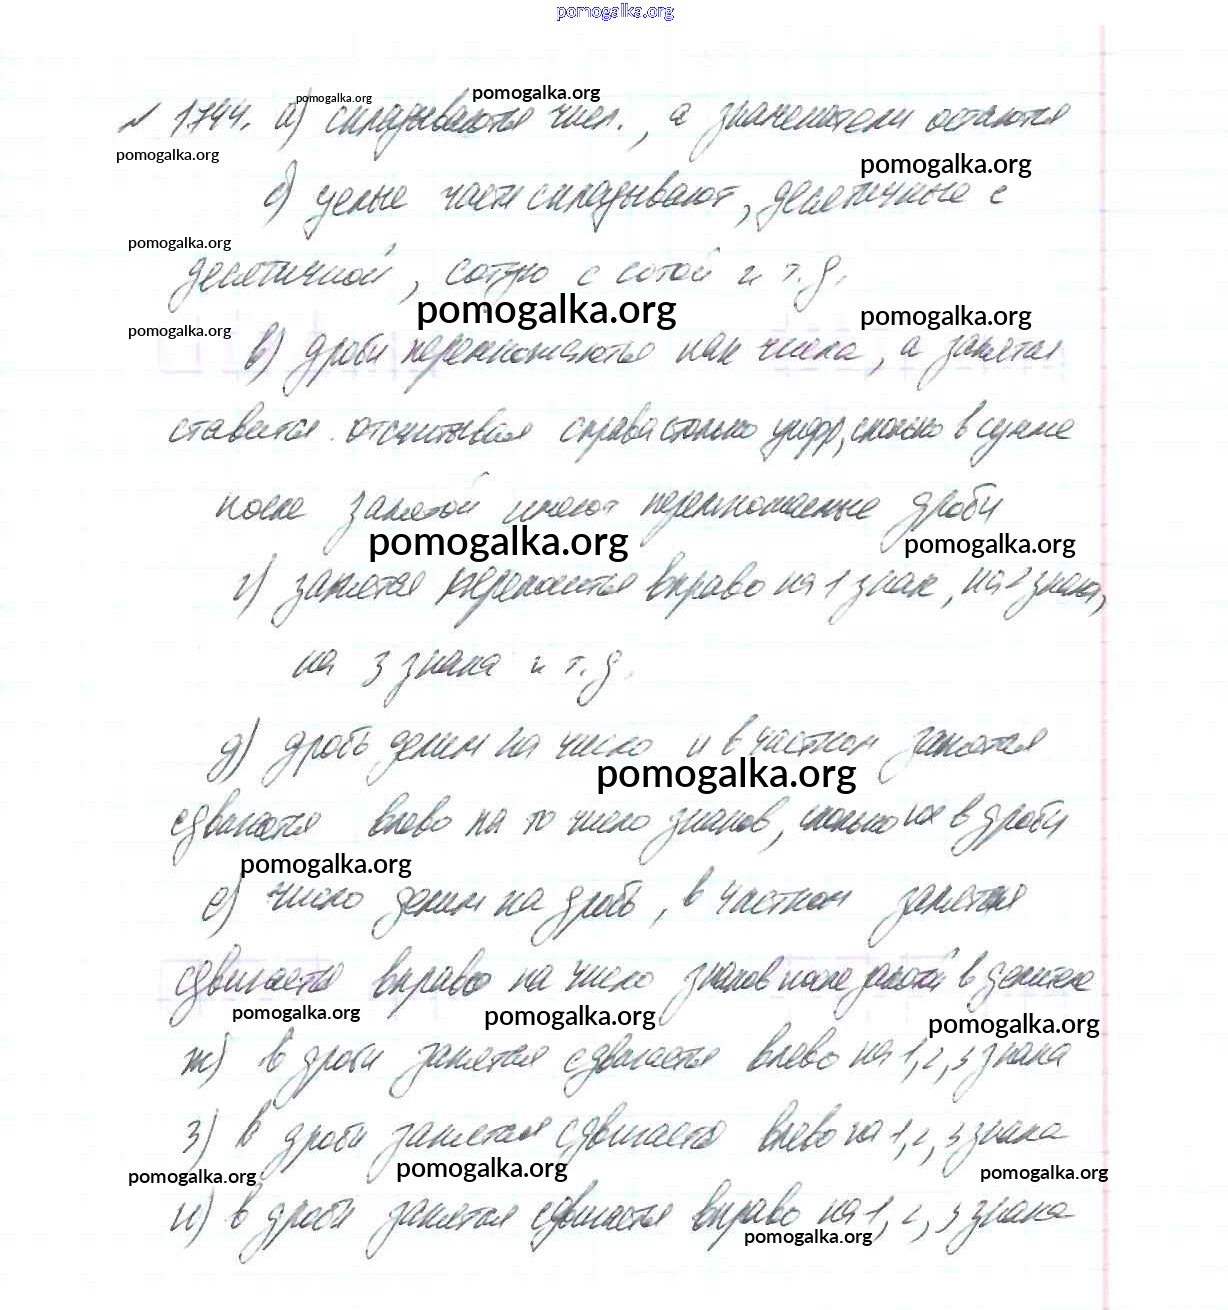 pomogalka.org
pomogalka.org
pomogalka.org
№ 1744. а) складываются числ., а знаменатели остаются
pomogalka.org
pomogalka.org
б) целые части складывают, десятичные с
pomogalka.org
десятичной, сотую с сотой и т.д.
pomogalka.org
pomogalka.org
pomogalka.org
в) дроби перемножаются как числа, а запятая
ставится отсчитывая справа столько цифр, сколько в сумме
после запятой имеют перемножаемые дроби
pomogalka.org
pomogalka.org
г) запятая переносится вправо на 1 знак, на 2 знака,
на 3 знака и т.д.
д) дробь делим на число и в частном запятая
pomogalka.org
сдвигается влево на то число знаков, сколько их в дроби
pomogalka.org
е) число делим на дробь, в частном запятая
сдвигается вправо на число знаков после запятой в делителе
pomogalka.org
pomogalka.org
pomogalka.org
ж) в дроби запятая сдвигается влево на 1, 2, 3 знака
з) в дроби запятая сдвигается влево на 1, 2, 3 знака
pomogalka.org
pomogalka.org
pomogalka.org
и) в дроби запятая сдвигается вправо на 1, 2, 3 знака
pomogalka.org